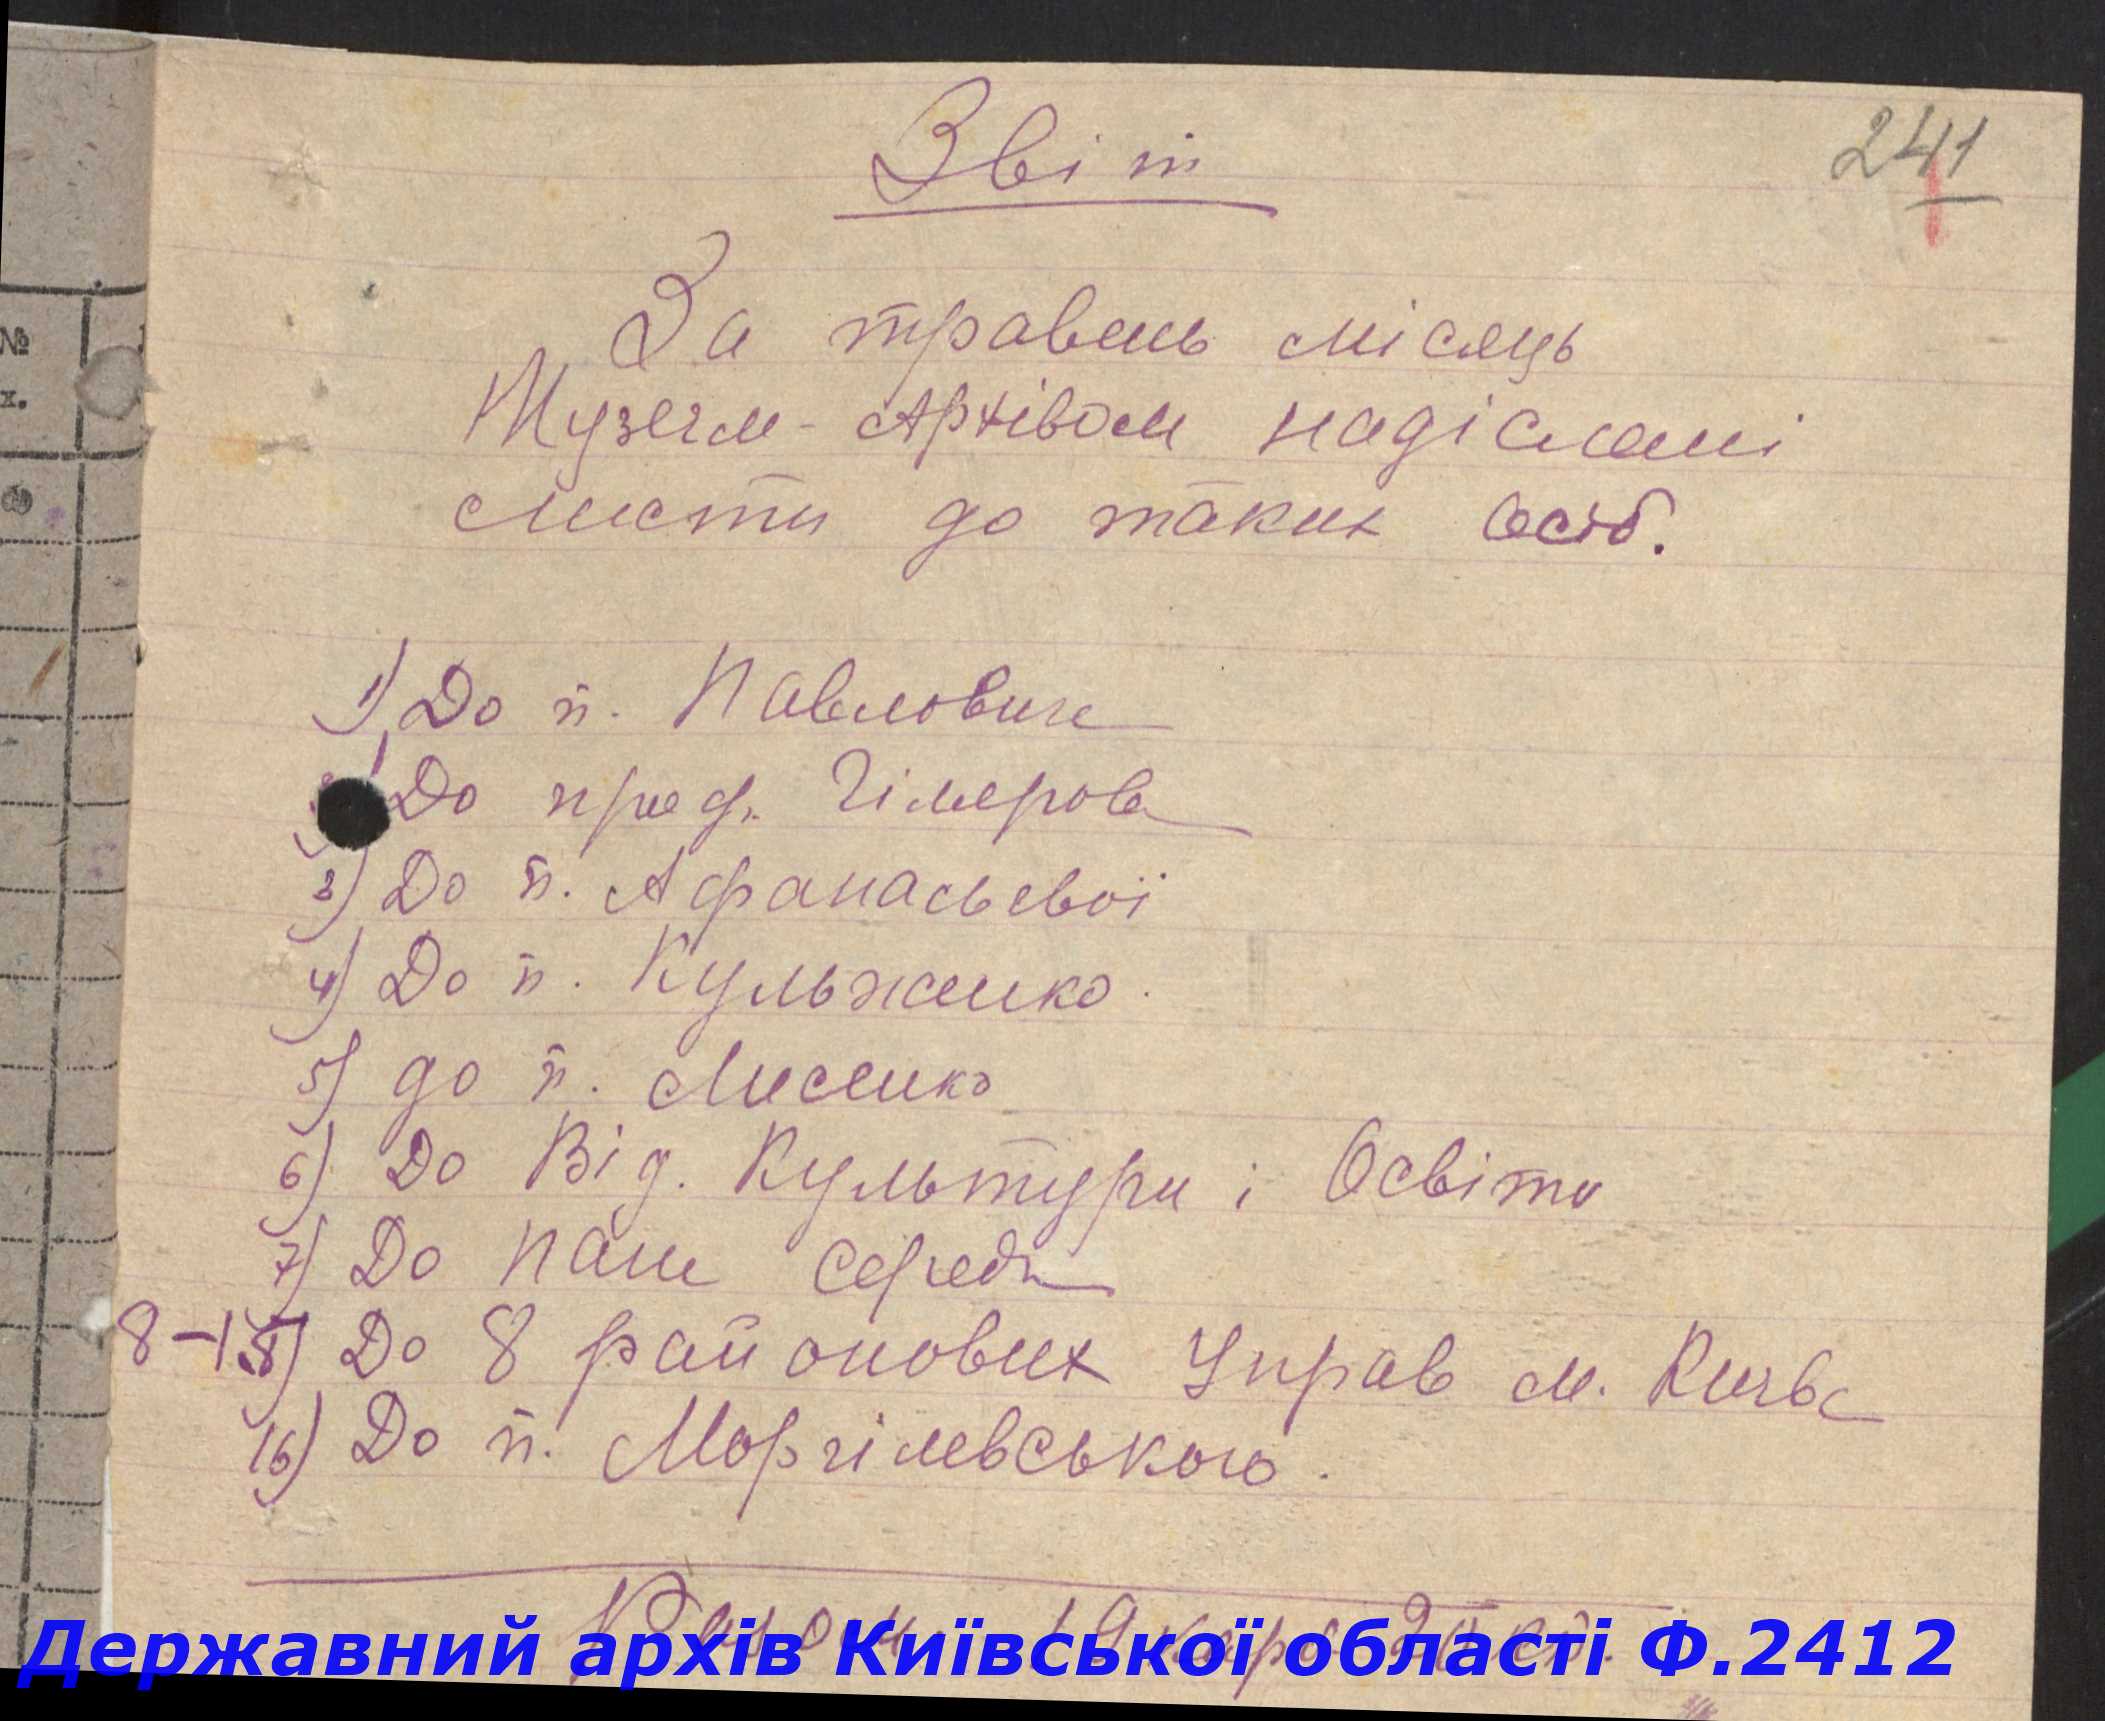 241
Звіт
За травень місяць
Музеєм-Архівом надіслані
листи до таких осіб.
1) До п. Павловича
До проф. Гілярова
3) До п. Афанасьевої
4) До п. Кульженко.
5) до п. Лисенко
6) До Від. Культури і Освіти
7) До пані Середи
8-15) До 8 районових Управ м. Києва
16) До п. Моргілевського.
Разом 19 карб.
Державний архів Київської області Ф.2412
№
х.